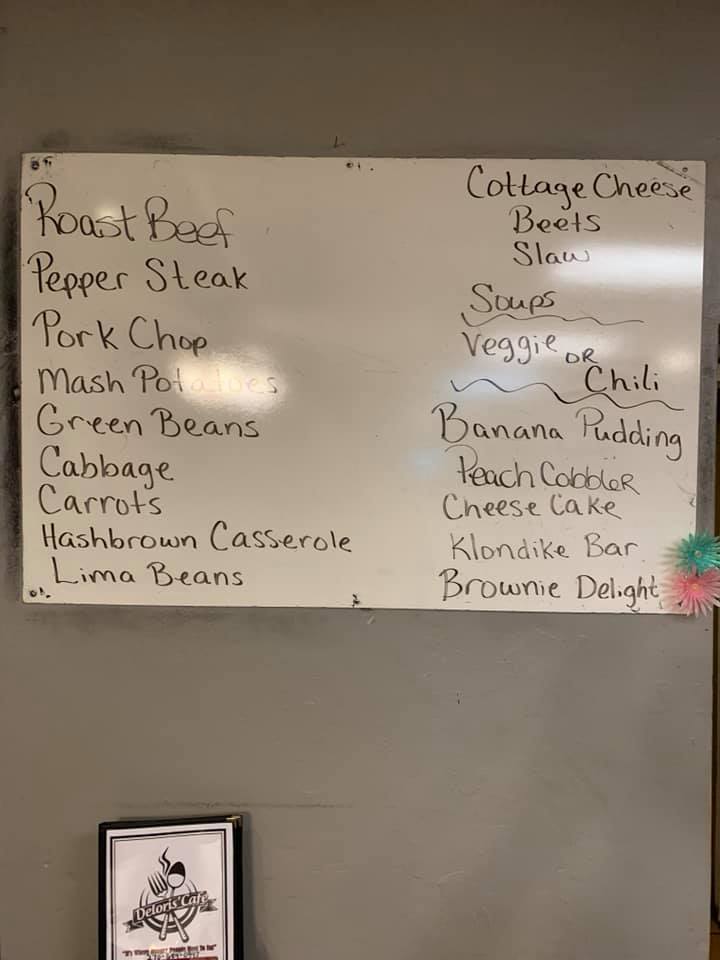 Roast Beef
Pepper Steak
Pork Chop
Mash Potatoes
Green Beans
Cabbage
Carrots
Hashbrown Casserole
Lima Beans
Cottage Cheese
Beets
Slaw
Soups
Veggie OR
Chili
Banana Pudding
Peach Cobbler
Cheese Cake
Klondike Bar
Brownie Delight
Deloris' Cafe